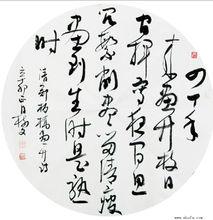 四十年
来画竹枝日
间挥写夜间思
冗繁削尽留清瘦
画到生时是熟
时
清郑板桥画竹诗
辛卯正月